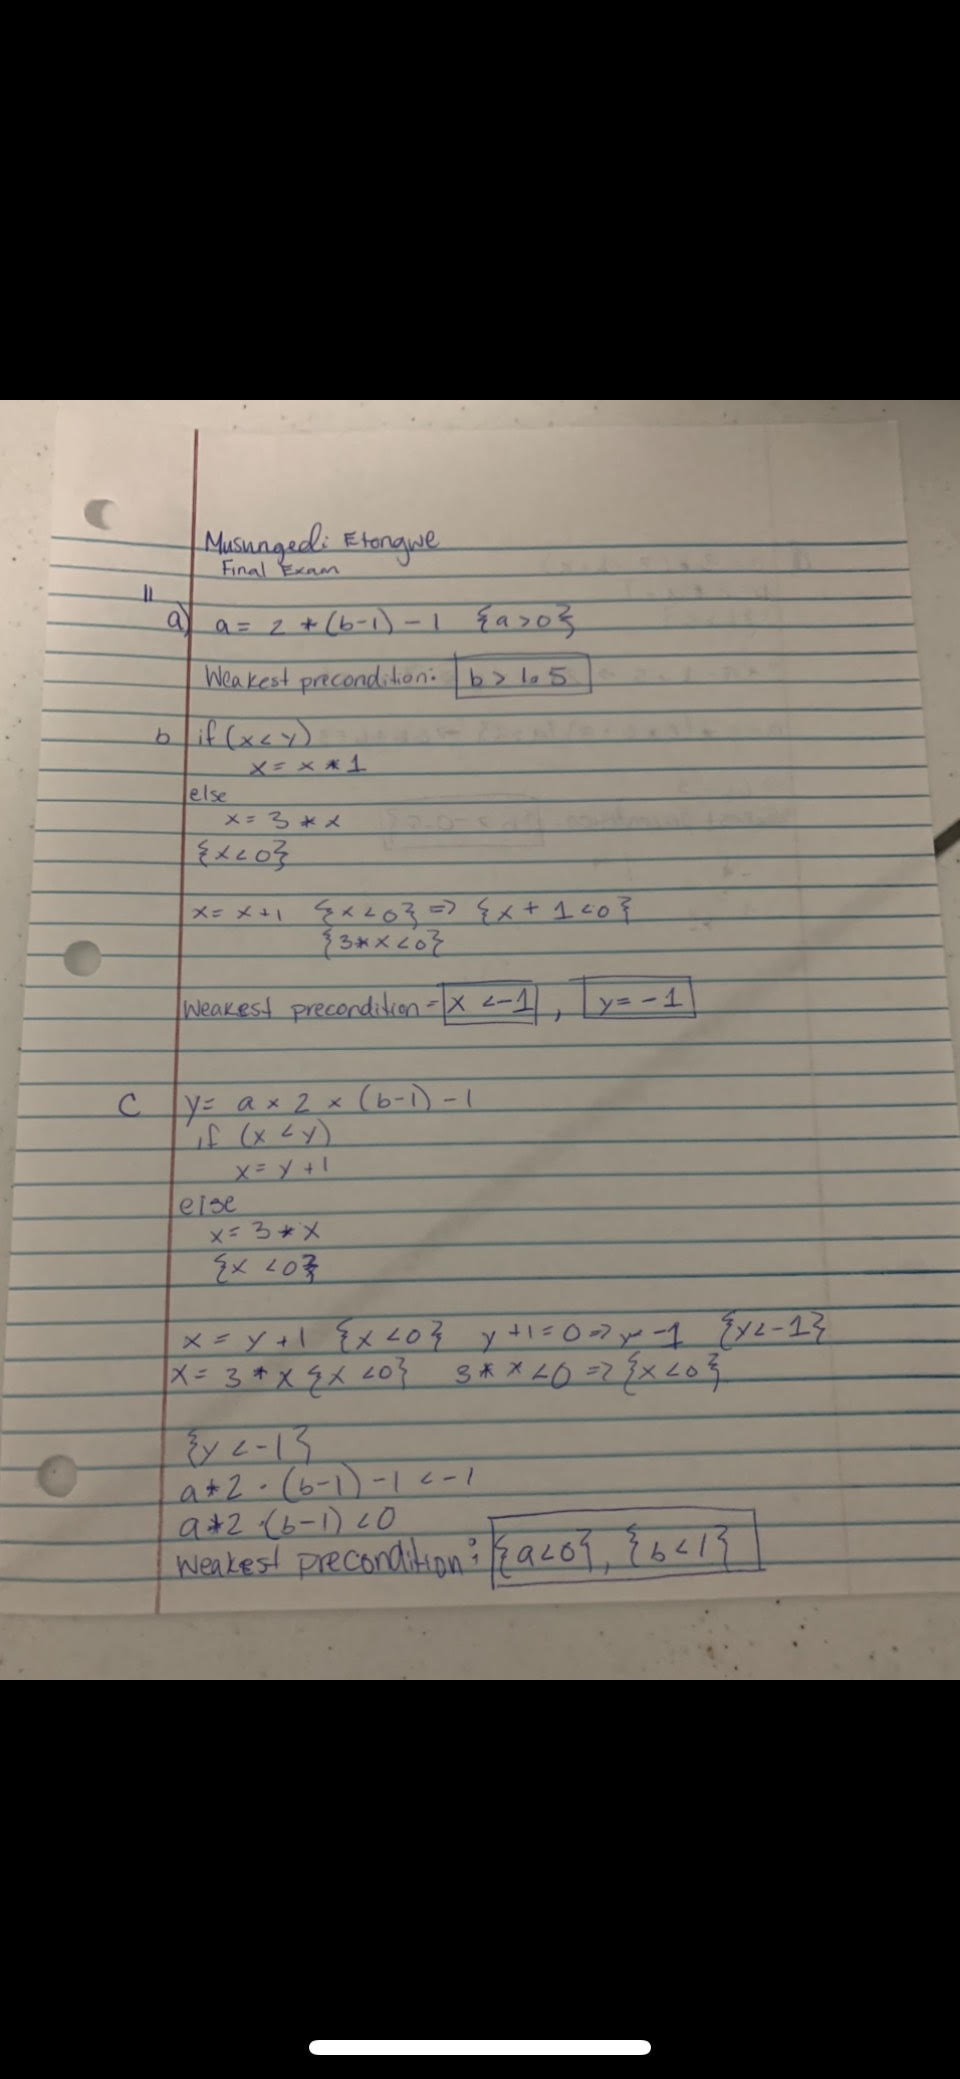 Musungedi Etongwe
Final Exam
11
a) a = 2 * (b-1) - 1 {a>0}
Weakest precondition: b > 1.5
b if (x<y)
x = x * 1
else
x = 3 * x
{x<0}
x = x+1 {x<0} => {x + 1 <0}
{3*x<0}
Weakest precondition = x <-1, y = -1
C y= a x 2 x (b-1) - 1
if (x <y)
x = y +1
else
x = 3 * x
{x <0}
x = y+1 {x<0} y+1=0 => y -1 {y<-1}
x= 3 * x {x <0} 3* x <0 => {x<0}
{y <-1}
a*2 · (b-1) -1 < -1
a*2 ·(b-1) <0
Weakest precondition: {a<0}, {b<1}